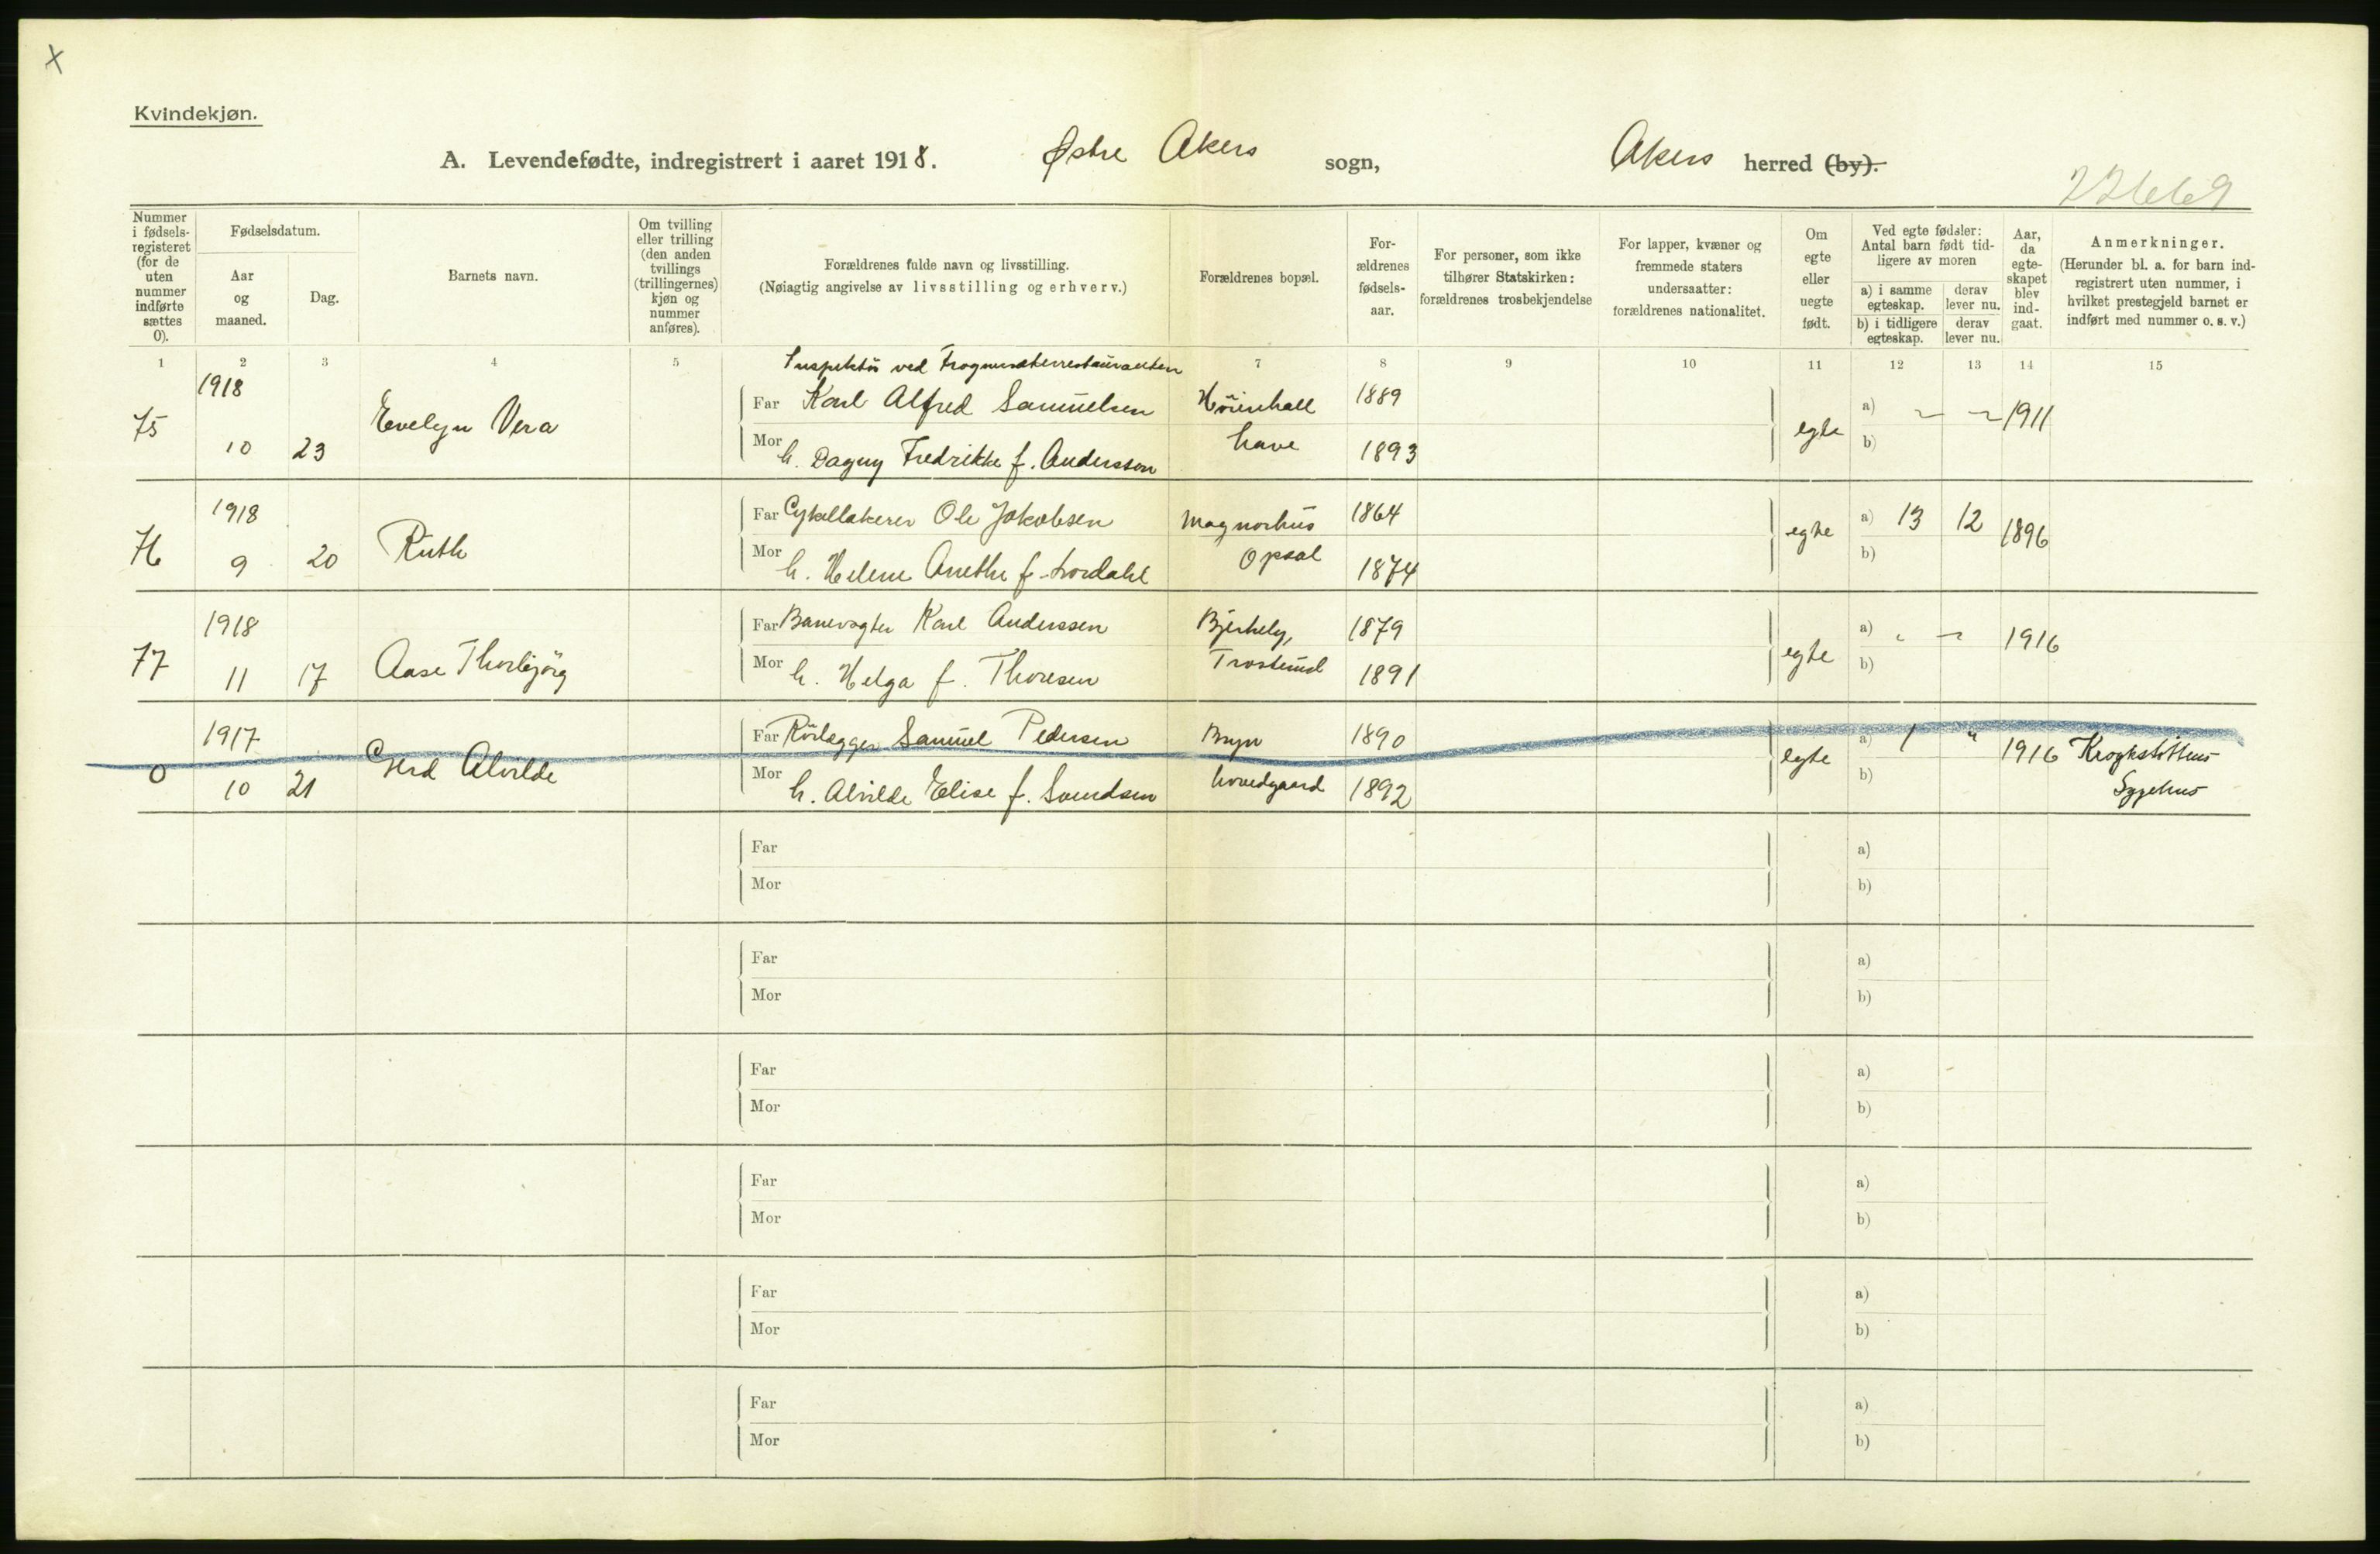 X
Kvindekjøn.
A. Levendefødte, indregistrert i aaret 1918. Østre Akers sogn, Akers herred (by).
22669
Nummer i fødsels-registeret (for de uten nummer indførte sættes 0).
Fødselsdatum.
Aar og maaned.
Dag.
Barnets navn.
Om tvilling eller trilling (den anden tvillings (trillingernes) kjøn og nummer anføres).
Forældrenes fulde navn og livsstilling.
(Nøiagtig angivelse av livsstilling og erhverv.)
Forældrenes bopæl.
For-ældrenes fødsels-aar.
For personer, som ikke tilhører Statskirken: forældrenes trosbekjendelse
For lapper, kvæner og fremmede staters undersaatter: forældrenes nationalitet.
Om egte eller uegte født.
Ved egte fødsler: Antal barn født tid-ligere av moren
a) i samme egteskap.
derav lever nu.
b) i tidligere egteskap.
derav lever nu.
Aar, da egte-skapet blev ind-gaat.
Anmerkninger.
(Herunder bl. a. for barn ind-registrert uten nummer, i hvilket prestegjeld barnet er indført med nummer o. s. v.)
1 2 3 4 5 7 8 9 10 11 12 13 14 15
Inspektör ved Frognersæterrestauranten
75 1918 10 23 Evelyn Vera
Far Karl Alfred Samuelsen 1889
Mor h. Dagny Fredrikke f. Andersson have 1893
egte a) b) 1911
76 1918 9 20 Ruth
Far Cykellakerer Ole Jakobsen Magnorhus 1864
Mor h. Helene Anethe f. Opsal 1874
egte a) 13 12 b) 1896
77 1918 11 17 Aase Thorbjörg
Far Banevogter Karl Anderssen Bjerkely, 1879
Mor h. Helga f. Thoresen Trosterud 1891
egte a) b) 1916
0 1917 10 21 Gerd Alvilde
Far Rörlegger Samuel Pedersen Bryn 1890
Mor h. Alvilde Elise f. Svendsen hovedgaard 1892
egte a) 1 " b) 1916 Krogkstöttens Sygehus
Far a)
Mor b)
Far a)
Mor b)
Far a)
Mor b)
Far a)
Mor b)
Far a)
Mor b)
Far a)
Mor b)